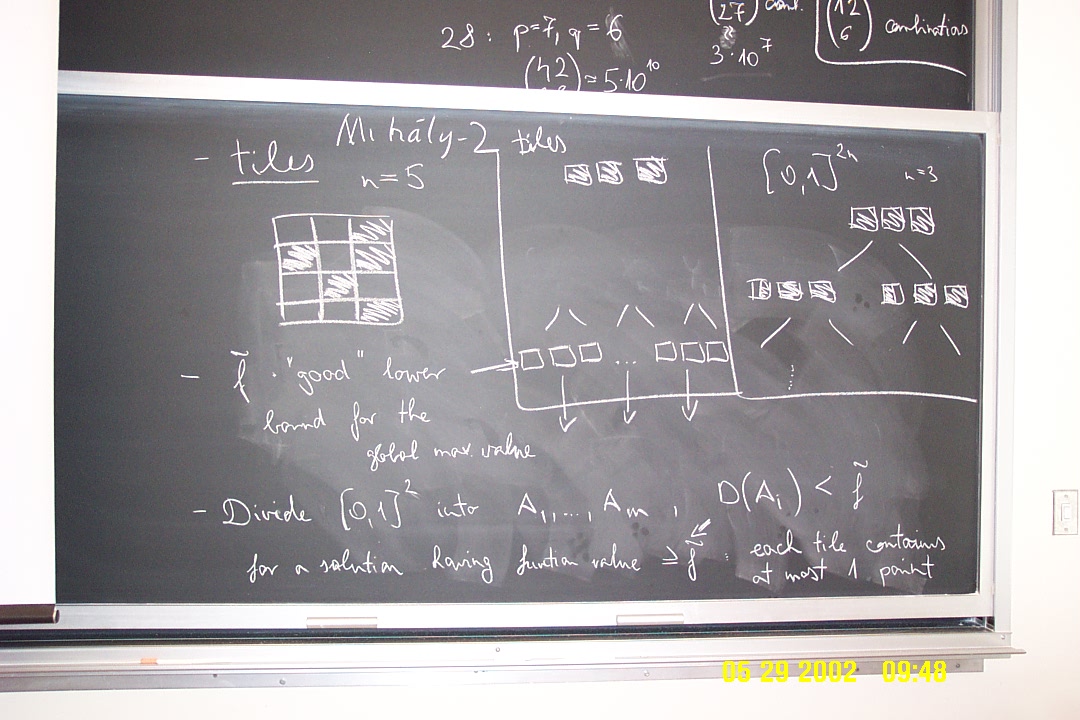 28: p=7, q=6
(27) comb.
≈
3·10^7
(12 6) combinations
(42) ≈ 5·10^10
Mihály-2
- tiles
n=5
tiles
[0,1]^2n
n=3
...
- f̃ · "good" lower
bound for the
global max. value
- Divide [0,1]^2 into A_1, ..., A_m, D(A_i) < f̃
for a solution having function value ≥ f̃ : each tile contains
at most 1 point
05 29 2002 09:48